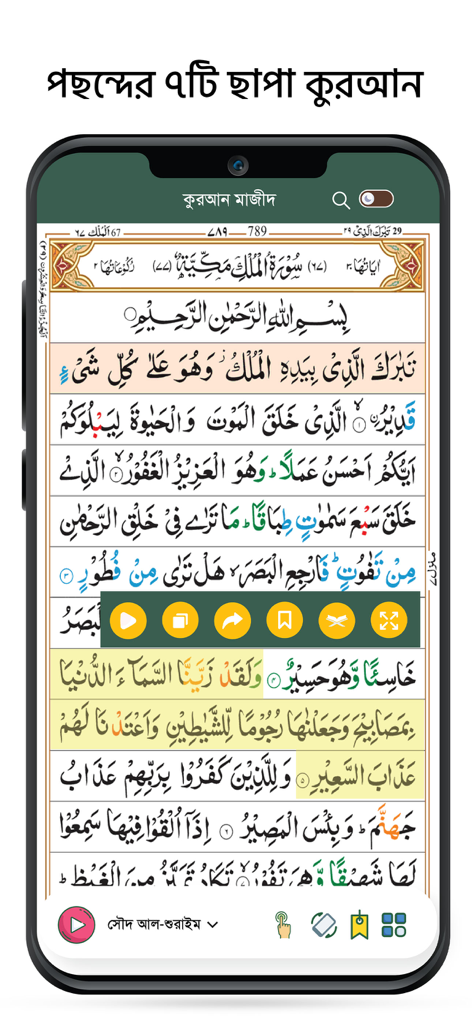 পছন্দের ৭টি ছাপা কুরআন
কুরআন মাজীদ
تبٰرك الذی ٢٩ 29 789 ٧٨٩ الملك ٦٧ 67
اٰيَاتُهَا ٣٠ (٦٧) سُوْرَةُ الْمُلْكِ مَكِّيَّةٌ (٧٧) رُكُوْعَاتُهَا ٢
بِسْمِ اللّٰهِ الرَّحْمٰنِ الرَّحِيْمِ
تَبٰرَكَ الَّذِىْ بِيَدِهِ الْمُلْكُ ز وَهُوَ عَلٰى كُلِّ شَىْءٍ
قَدِيْرُ ۨ ۙ ١ الَّذِىْ خَلَقَ الْمَوْتَ وَالْحَيٰوةَ لِيَبْلُوَكُمْ
اَيُّكُمْ اَحْسَنُ عَمَلًا ؕ وَهُوَ الْعَزِيْزُ الْغَفُوْرُ ۙ ٢ الَّذِىْ
خَلَقَ سَبْعَ سَمٰوٰتٍ طِبَاقًا ؕ مَا تَرٰى فِىْ خَلْقِ الرَّحْمٰنِ
مِنْ تَفٰوُتٍ ؕ فَارْجِعِ الْبَصَرَ ۙ هَلْ تَرٰى مِنْ فُطُوْرٍ ٣
لْبَصَرُ
خَاسِئًا وَّهُوَ حَسِيْرٌ ٤ وَلَقَدْ زَيَّنَّا السَّمَآءَ الدُّنْيَا
بِمَصَابِيْحَ وَجَعَلْنٰهَا رُجُوْمًا لِّلشَّيٰطِيْنِ وَاَعْتَدْنَا لَهُمْ
عَذَابَ السَّعِيْرِ ٥ وَلِلَّذِيْنَ كَفَرُوْا بِرَبِّهِمْ عَذَابُ
جَهَنَّمَ ؕ وَبِئْسَ الْمَصِيْرُ ٦ اِذَاۤ اُلْقُوْا فِيْهَا سَمِعُوْا
لَهَا شَهِيْقًا وَّهِىَ تَفُوْرُ ۙ ٧ تَكَادُ تَمَيَّزُ مِنَ الْغَيْظِ ؕ
সৌদ আল-শুরাইম